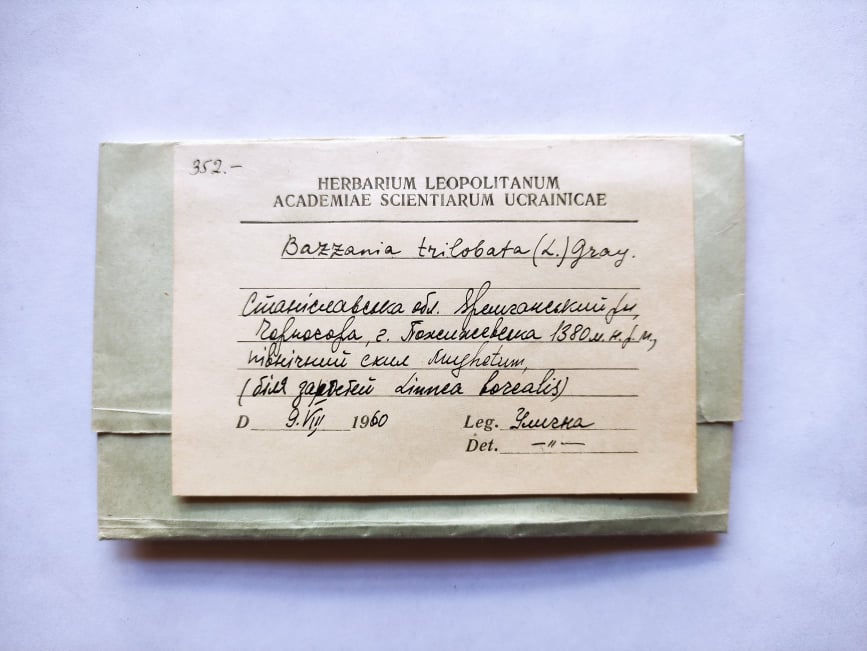 352.-
HERBARIUM LEOPOLITANUM
ACADEMIAE SCIENTIARUM UCRAINICAE
Bazzania trilobata (L.) Gray.
Станіславська обл. Яремчанський р-н,
Чорногора, г. Пожижевська 1380 м.н.р.м,
північний схил Mughetum,
(біля заростей Linnea borealis)
D 9.VIII 1960 Leg. Улична
Det. -〃-